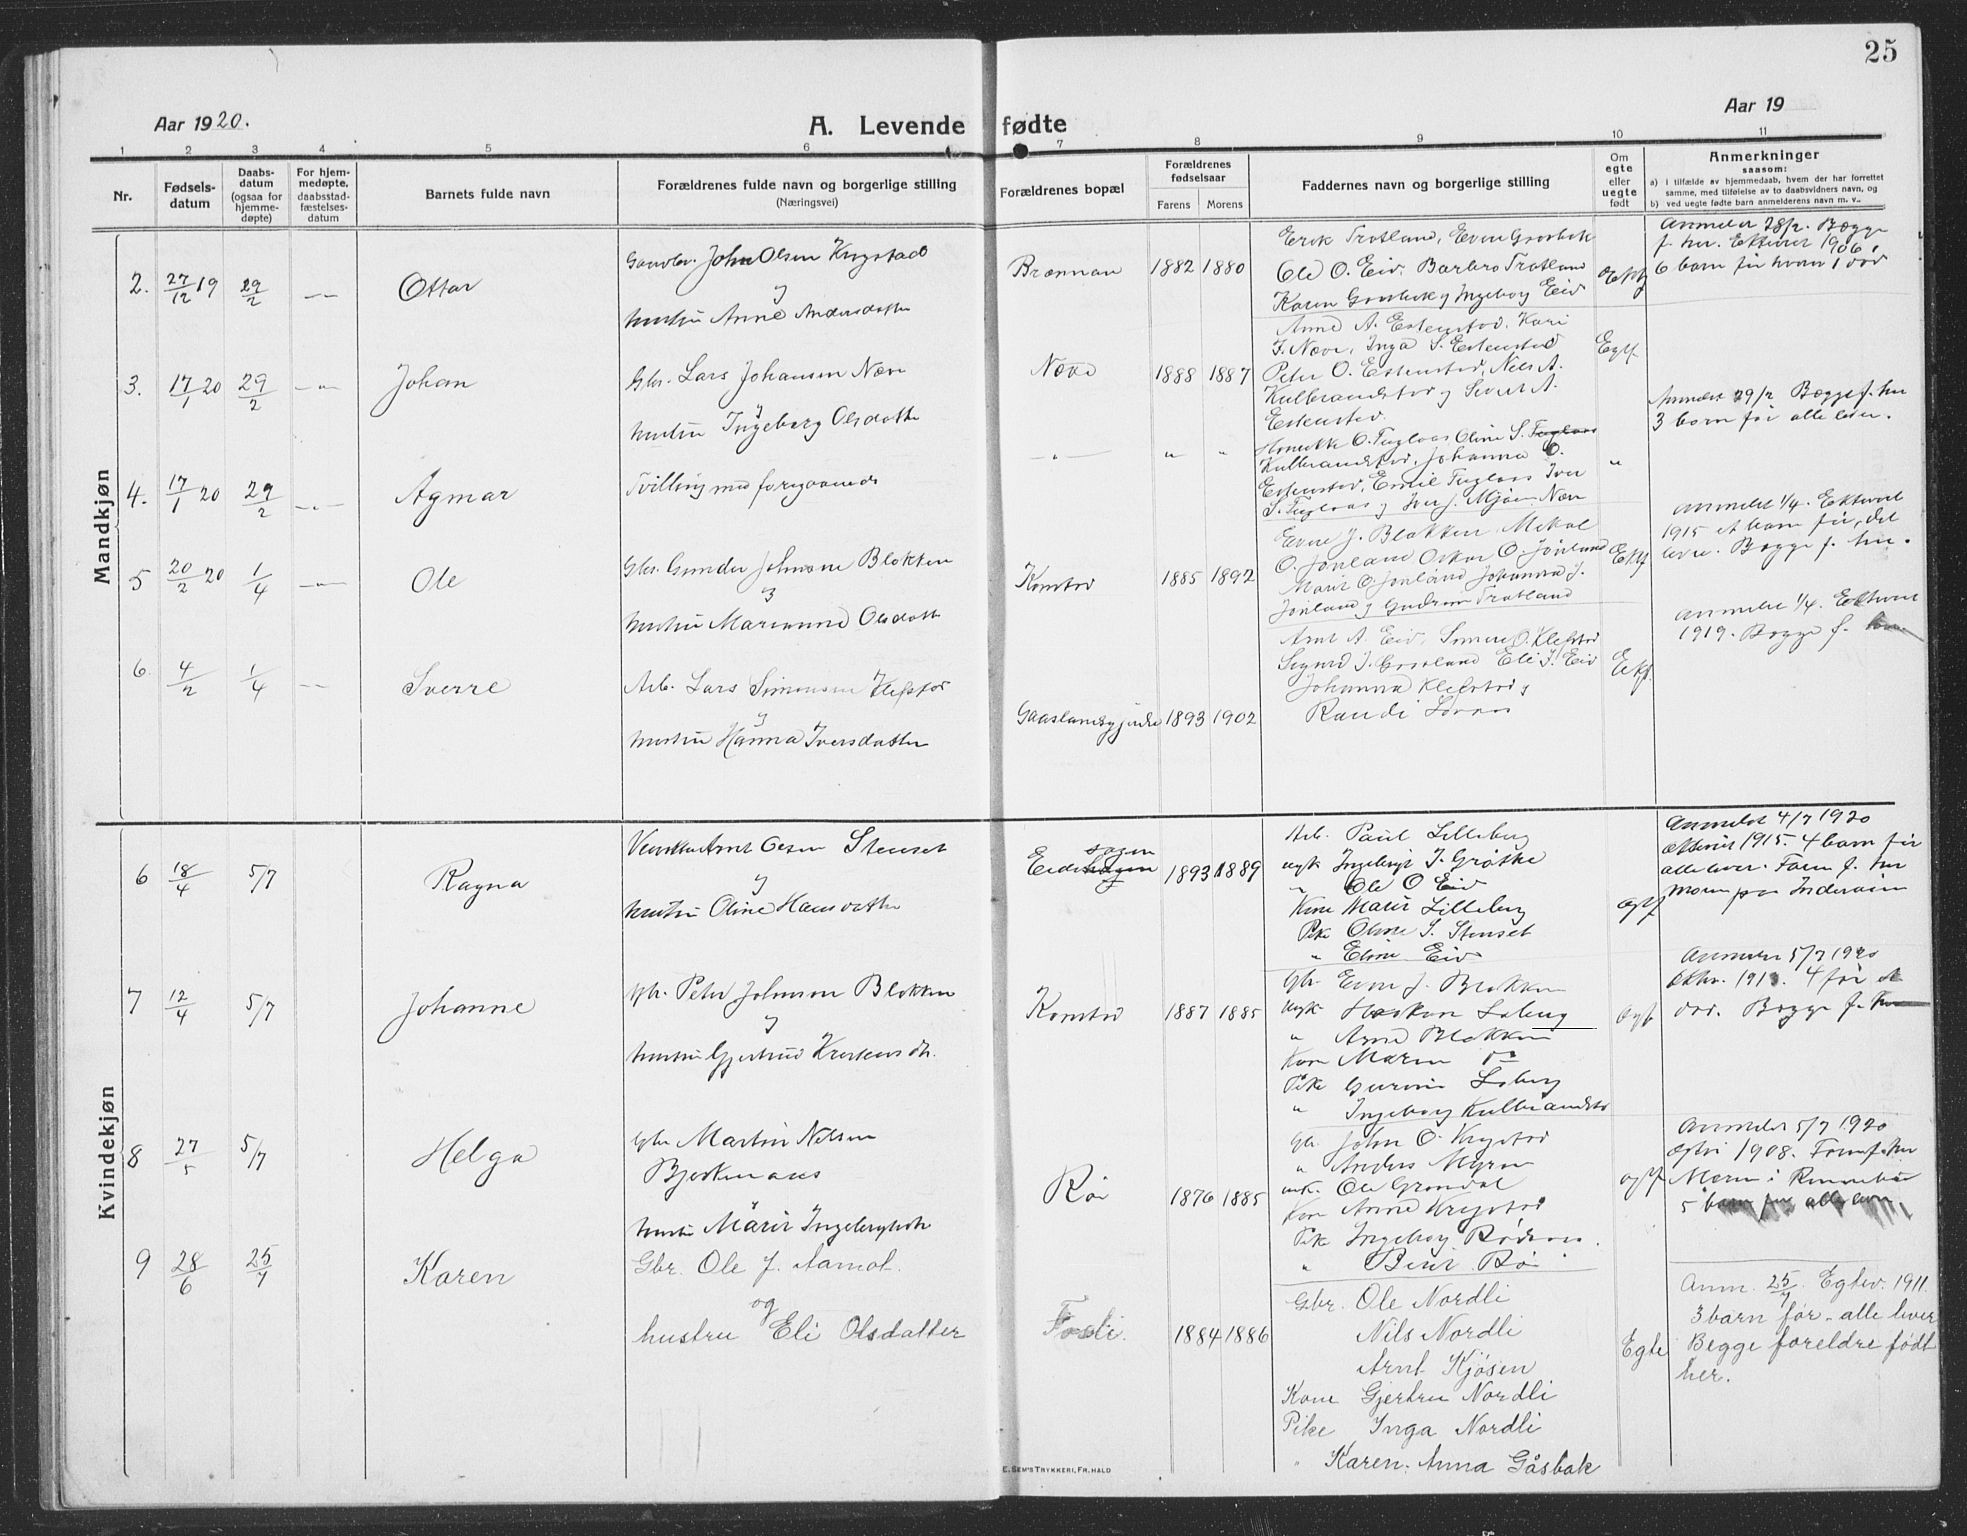 25
Aar 1920.
A. Levende fødte
Aar 19
1 2 3 4 5 6 7 8 9 10 11
Nr.
Fødsels-
datum
Daabs-
datum
(ogsaa for
hjemme-
døpte)
For hjem-
medøpte,
daabsstad-
fæstelses-
datum
Barnets fulde navn
Forældrenes fulde navn og borgerlige stilling
(Næringsvei)
Forældrenes bopæl
Forældrenes
fødselsaar
Farens Morens
Faddernes navn og borgerlige stilling
Om
egte
eller
uegte
født
Anmerkninger
saasom:
a) I tilfælde av hjemmedaab, hvem der har forrettet
samme, med tilføielse av to daabsvidners navn, og
b) ved uegte fødte barn anmelderens navn m. v..
Mandkjøn
2. 27/12 19 29/2 Ottar
John Olsen Krigstad
og
hustru Anne Andersdatter
1882 1880
Erik Trotland, Even Grosbak
Ole O. Eid, Barbro Trotland
Karen Grosbak og Ingeborg Eid
Anmeldt 28/2. Begge
f. her. Ektevied 1906.
6 barn før hvorav 1 død
3. 17/1 20 29/2 Johan
Gbr. Lars Johansen Næve
og
hustru Ingeborg Olsdatter
Næve 1888 1887
Anne A. Estenstad, Kari
J. Næve, Inga S. Estenstad
Peter O. Estenstad, Nils A.
Kulbrandstad og Sivert A.
Estenstad.
Egte
Anmeldt 29/2 Begge f. her
3 barn før alle lever.
4. 17/1 20 29/2 Agmar
Tvilling med foregaaende
O. Fuglaas Oline S. Fuglaas
Kulbrandstad, Johanna O.
Estenstad, Emil Fuglaas Iver
S. Fuglaas og Iver J. Mjøen Næve
5 20/2 20 1/4 Ole
Gbr. Gunder Johnsen Blokken
og
hustru Marianne Olsdatter
Konstad 1885 1892
Even J. Blokken Mikal
O. Jonland Oskar O. Jonland
Marit O. Jonland Johanna J.
Jonland og Gudrun Trotland
Anmeldt 1/4. Ektevied
1915 et barn før, det
lever. Begge f. her.
6. 4/2 1/4 Sverre
Arb. Lars Simonsen Klefstad
og
hustru Hanna Iversdatter
1893 1902
Arnt A. Eid, Simon O. Klefstad
Sigurd J. Gaasland Eli J. Eid
Johanna Klefstad og
Randi
Anmeldt 1/4. Ektevied
1919. Begge f. her
Kvindekjøn
6 18/4 5/7 Ragna
Arnt Olsen Stenset
og
hustru Oline Hansdatter
1893 1889
Arb. Paul Lilleberg
ungk Ingebrigt J. Grøtte
" Ole O Eid
Kone Marit Lilleberg
Pike Oline S. Stenset
" Eline Eid
Anmeldt 4/7 1920
1915. 4 barn før
alle lever. Faren f. her
Moren paa Inderøien
7 12/4 5/7 Johanne
Gbr. Peter Johnsen Blokken
og
hustru Gjertrud
Konstad 1887 1885
Gbr. Even J. Blokken
ungk Haakon Loberg
" Arne Blokken
Kone Maren do
Pike Gurine Loberg
" Ingeborg Kulbrandstad
Anmeldt 5/7 1920
4 før
død. Begge f. her
8 27/5 5/7 Helga
Gbr Martin Nilsen
Bjerkenaas
hustru Marit Ingebrigtsdtr
Rø 1876 1885
Gbr. John O. Krigstad
" Anders Myran
ungk. Ole Grøndal
Kone Anne Krigstad
Pike Ingeborg Rødsaas.
" Berit Rø
Anmeldt 5/7 1920
1908. Faren f. her
Moren i Rennebu
5 barn før alle lever.
9 28/6 25/7 Karen
Gbr. Ole J. Aamot.
og
hustru Eli Olsdatter
Fosli. 1884 1886
Gbr. Ole Nordli
Nils Nordli
Arnt Kjøsen
Kone Gjertru Nordli
Pike Inga Nordli
" Karen Anna Gåsbak
Egte
Anm. 25/7. Egtev. 1911
3 barn før - alle lever
Begge foreldre født
her.
E. SEM'S TRYKKERI, FR. HALD